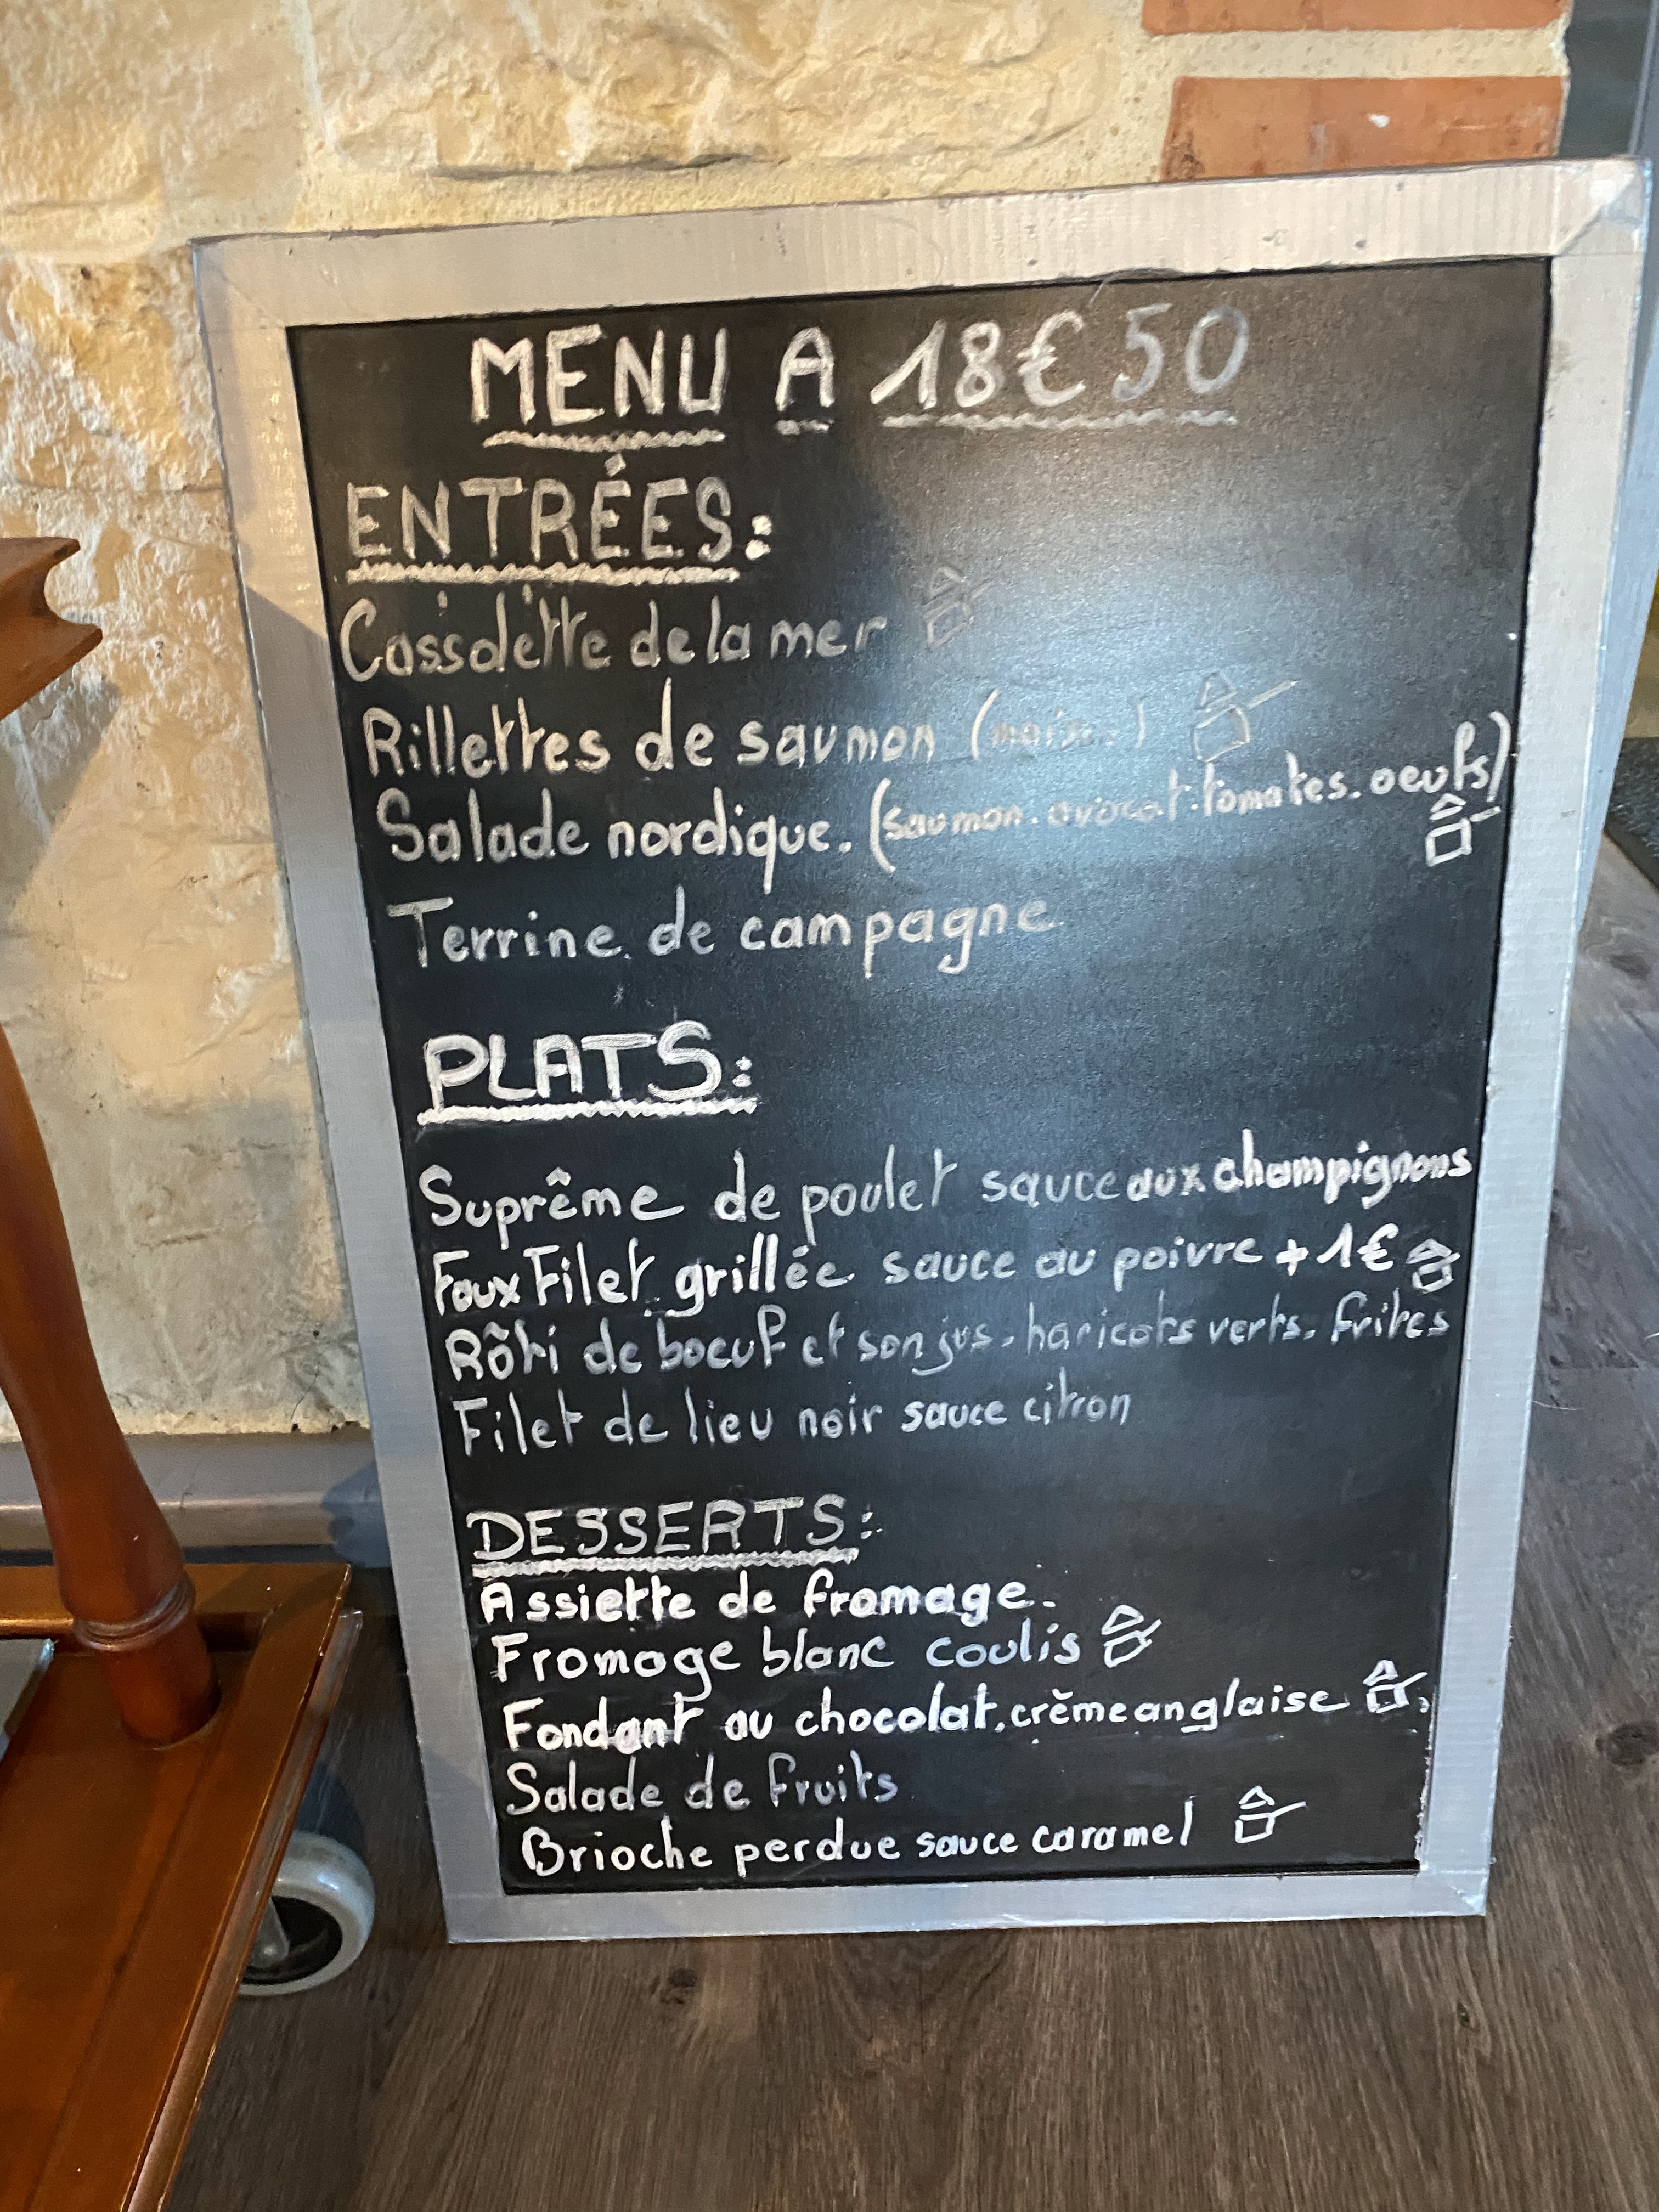 MENU A 18€50
ENTRÉES:
Cassolette de la mer
Rillettes de saumon (maison)
Salade nordique. (saumon. avocat. tomates. oeufs)
Terrine de campagne
PLATS:
Suprême de poulet sauce aux champignons
Faux Filet grillée sauce au poivre + 1€
Rôti de boeuf et son jus. haricots verts. frites
Filet de lieu noir sauce citron
DESSERTS:
Assiette de fromage.
Fromage blanc coulis
Fondant au chocolat, crème anglaise
Salade de fruits
Brioche perdue sauce caramel